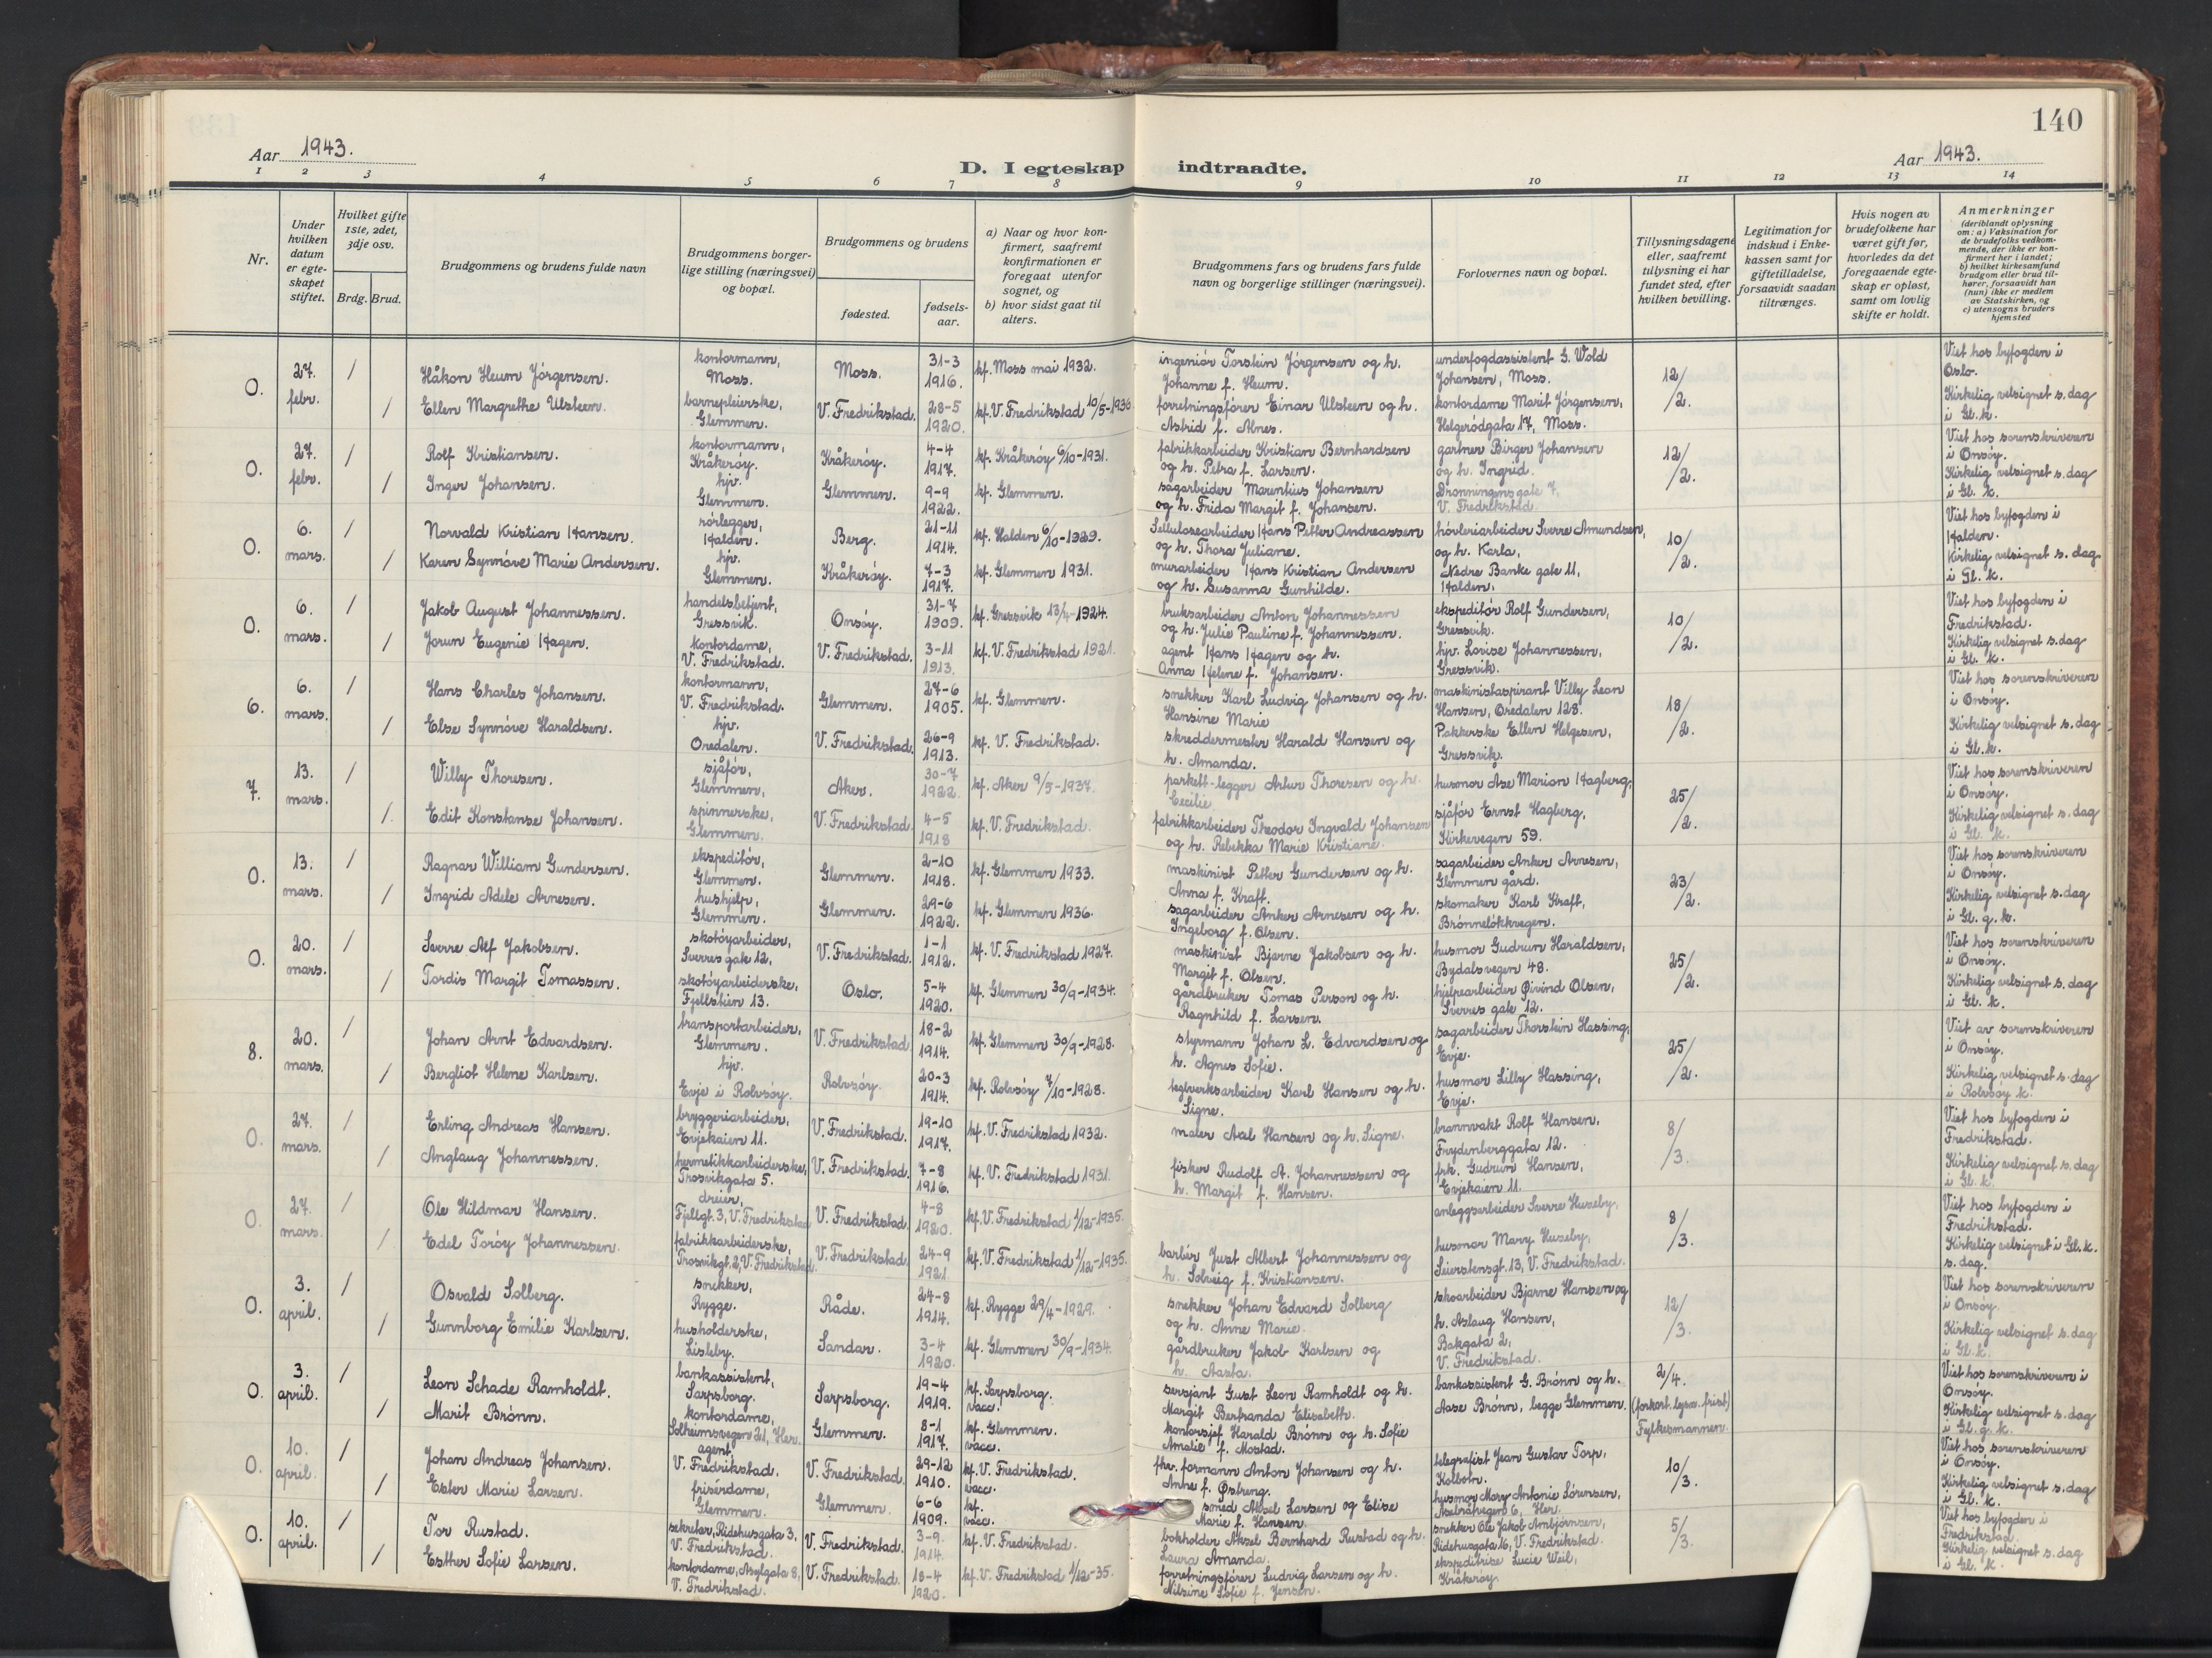 140
Aar 1943.
D. I egteskap indtraadte.
Aar 1943.
1 2 3 4 5 6 7 8 9 10 11 12 13 14
Nr.
Under hvilken datum er egteskapet stiftet.
Hvilket gifte 1ste, 2det, 3dje osv.
Brdg. Brud.
Brudgommens og brudens fulde navn
Brudgommens borgerlige stilling (næringsvei) og bopæl.
Brudgommens og brudens
fødested.
fødselsaar.
a) Naar og hvor konfirmert, saafremt konfirmationen er foregaat utenfor sognet, og
b) hvor sidst gaat til alters.
Brudgommens fars og brudens fars fulde navn og borgerlige stillinger (næringsvei).
Forlovernes navn og bopæl.
Tillysningsdagene eller, saafremt tillysning ei har fundet sted, efter hvilken bevilling.
Legitimation for indskud i Enkekassen samt for giftetilladelse, forsaavidt saadan tiltrænges.
Hvis nogen av brudefolkene har været gift før, hvorledes da det foregaaende egteskap er opløst, samt om lovlig skifte er holdt.
Anmerkninger
(deriblandt oplysning om: a) Vaksination for de brudefolks vedkommende, der ikke er konfirmert her i landet;
b) hvilket kirkesamfund brudgom eller brud tilhører, forsaavidt han (hun) ikke er medlem av Statskirken, og
c) utensogns bruders hjemsted
0. 27. febr. / Håkon Heum Jörgensen. kontormann, Moss. Moss. 31-3 1916. kf. Moss mai 1932. ingeniör Torstein Jörgensen og h. Johanne f. Heum. underfogdassistent G. Wold Johansen, Moss. 12/2. Viet hos byfogden i Oslo.
/ Ellen Margrethe Ulsteen. barnepleierske, Glemmen. V. Fredrikstad. 28-5 1920. kf. V. Fredrikstad 10/5-1936 forretningsfører Einar Ulsteen og h. Astrid f. Alnes. kontordame Marit Jörgensen, Helgerödgata 17, Moss. Kirkelig velsignet s. dag i Gl. k.
0. 27. febr. / Rolf Kristiansen. kontormann, Kråkeröy. Kråkeröy. 4-4 1917. kf. Kråkeröy 6/10-1931. fabrikkarbeider Kristian Bernhardsen og h. Petra f. Larsen. gartner Birger Johansen og h. Ingrid. 12/2. Viet hos sorenskriveren i Onsöy.
/ Inger Johansen. hjv. Glemmen. Glemmen. 9-9 1922. kf. Glemmen. sagarbeider Marentius Johansen og h. Frida Margit f. Johansen. Dronningensgate 7, V. Fredrikstad. Kirkelig velsignet s. dag i Gl. k.
0. 6. mars. / Norvald Kristian Hansen. rörlegger, Halden. Berg. 21-11 1914. kf. Halden 6/10-1929. Sellulosearbeider Hans Petter Andreassen og h. Thora Juliane. hövleriarbeider Sverre Amundsen, og h. Karla, 10/2. Viet hos byfogden i Halden.
/ Karen Synnöve Marie Andersen. hjv. Glemmen. Kråkeröy. 7-3 1917. kf. Glemmen 1931. murarbeider Hans Kristian Andersen og h. Susanna Gunhilde. Nedre Banke gate 11, Halden. Kirkelig velsignet s. dag i Gl. k.
0. 6. mars. / Jakob August Johannessen. handelsbetjent, Gressvik. Onsöy. 31-7 1909. kf. Gressvik 13/4-1924. bruksarbeider Anton Johannessen og h. Julie Pauline f. Johannessen. ekspeditör Rolf Gundersen, Gressvik. 10/2. Viet hos byfogden i Fredrikstad.
/ Jorun Eugenie Hagen. kontordame, V. Fredrikstad. V. Fredrikstad. 3-11 1913. kf. V. Fredrikstad 1921. agent Hans Hagen og h. Anna Helene f. Johansen. hjv. Lovise Johannessen, Gressvik. Kirkelig velsignet s. dag i Gl. k.
6. 6. mars. / Hans Charles Johansen. kontormann, V. Fredrikstad. Glemmen. 27-6 1905. kf. Glemmen. snekker Karl Ludvig Johansen og h. Hansine Marie maskinistaspirant Villy Leon Hansen, Oredalen 128. 18/2. Viet hos sorenskriveren i Onsöy.
/ Else Synnöve Haraldsen. hjv. Oredalen. V. Fredrikstad. 26-9 1913. kf. V. Fredrikstad. skreddermester Harald Hansen og h. Amanda. Pakkerske Ellen Helgesen, Gressvik. Kirkelig velsignet s. dag i Gl. k.
7. 13. mars. / Willy Thoresen. sjåför, Glemmen, Aker. 30-7 1922. kf. Aker 9/5-1937. parkett-legger Artur Thoresen og h. Cecilie. husmor Åse Marion Hagberg, 25/2. Viet hos sorenskriveren i Onsöy.
/ Edit Konstanse Johansen. spinnerske, Glemmen. V. Fredrikstad. 4-5 1918 kf. V. Fredrikstad. fabrikkarbeider Theodor Ingvald Johansen og h. Rebekka Marie Kristiane. sjåför Ernst Hagberg, Kirkevegen 59. Kirkelig velsignet s. dag i Gl. k.
0. 13. mars. / Ragnar William Gundersen. ekspeditör, Glemmen. Glemmen. 2-10 1918. kf. Glemmen 1933. maskinist Petter Gundersen og h. Anna f. Kraft. sagarbeider Anker Arnesen, Glemmen gård. 23/2. Viet hos sorenskriveren i Onsöy.
/ Ingrid Adele Arnesen. hushjelp, Glemmen. Glemmen. 29-6 1922. kf. Glemmen 1936. sagarbeider Anker Arnesen og h. Ingeborg f. Olsen. skomaker Karl Kraft, Brönnelökkvegen. Kirkelig velsignet s. dag i Gl. g. k.
0. 20. mars. / Sverre Alf Jakobsen. skotöyarbeider, Sverres gate 12, V. Fredrikstad. 1-1 1912. kf. V. Fredrikstad 1927. maskinist Bjarne Jakobsen og h. Margit f. Olsen. husmor Gudrun Haraldsen, Bydalsvegen 48. 25/2. Viet hos sorenskriveren i Onsöy.
/ Tordis Margit Tomassen. skotöyarbeiderske, Fjellstien 13. Oslo. 5-4 1920. kf. Glemmen 30/9-1934. gårdbruker Tomas Person og h. Ragnhild f. Larsen. hjelpearbeider Øivind Olsen, Sverres gate 12. Kirkelig velsignet s. dag i Gl. k.
8. 20. mars. / Johan Arnt Edvardsen. transportarbeider, Glemmen. V. Fredrikstad 18-2 1914. kf. Glemmen 30/9-1928. styrmann Johan L. Edvardsen og h. Agnes Sofie. sagarbeider Thorstein Hassing, Evje. 25/2. Viet av sorenskriveren i Onsöy.
/ Bergliot Helene Karlsen. hjv. Evje i Rolvsöy. Rolvsöy. 20-3 1914. kf. Rolvsöy 7/10-1928. teglverksarbeider Karl Hansen og h. Signe. husmor Lilly Hassing, Evje. Kirkelig velsignet s. dag i Rolvsöy k.
0. 27. mars. / Erling Andreas Hansen. bryggeriarbeider, Evjekaien 11. V. Fredrikstad. 19-10 1917. kf. V. Fredrikstad 1932. maler Axel Hansen og h. Signe. brannvakt Rolf Hansen, Frydenberggata 12. 8/3. Viet hos byfogden i Fredrikstad.
/ Anglaug Johannessen. hermetikkarbeiderske, Trosvikgata 5. V. Fredrikstad. 7-8 1916. kf. V. Fredrikstad 1931. fisker Rudolf A. Johannessen og h. Margit f. Hansen. frk. Gudrun Hansen, Evjekaien 11. Kirkelig velsignet s. dag i Gl. k.
0. 27. mars. / Ole Hildmar Hansen. dreier, Fjellgt. 3, V. Fredrikstad V. Fredrikstad. 4-8 1920. kf. V. Fredrikstad 1/12-1935. anleggsarbeider Sverre Huseby, 8/3. Viet hos byfogden i Fredrikstad.
/ Edel Toröy Johannessen. fabrikkarbeiderske, Trosvikgt. 2, V. Fredrikstad. V. Fredrikstad. 24-9 1921. kf. V. Fredrikstad 1/12-1935. barbér Just Albert Johannessen og h. Solveig f. Kristiansen. husmor Mary Huseby, Seierstensgt. 13, V. Fredrikstad. Kirkelig velsignet i Gl. k. s. dag.
0. 3. april. / Osvald Solberg. snekker, Rygge. Råde. 24-8 1914. kf. Rygge 29/4-1929. snekker Johan Edvard Solberg og h. Anne Marie. skoarbeider Bjarne Hansen og h. Aslaug Hansen, 12/3. Viet hos sorenskriveren i Onsöy.
/ Gunnborg Emilie Karlsen. husholderske, Lisleby. Sandar. 3-4 1920. kf. Glemmen 30/9-1934. gårdbruker Jakob Karlsen og h. Aasta. Bakgata 2, V. Fredrikstad. Kirkelig velsignet s. dag i Gl. k.
0. 3. april. / Leon Schade Ramholdt. bankassistent, Sarpsborg. Sarpsborg. 19-4 1919. kf. Sarpsborg. vacc. sersjant Gust Leon Ramholdt og h. Margit Bertranda Elisabeth. bankassistent G. Brönn og h. Aase Brönn, begge Glemmen. 2/4. (forkort. lysn. frist) Fylkesmannen. Viet hos sorenskriveren i Onsöy.
/ Marit Brönn. kontordame, Solheimsvegen 21, Her. Glemmen. 8-1 1917. kf. Glemmen. vacc. kontorsjef Harald Brönn og h. Sofie Amalie f. Mostad. Kirkelig velsignet s. dag i Gl. g. k.
0. 10. april. / Johan Andreas Johansen. agent, V. Fredrikstad. V. Fredrikstad. 29-12 1910. kf. V. Fredrikstad. vacc. fhv. formann Anton Johansen og h. Anne f. Østreng. telegrafist Jean Gustav Torp, Kolbotn. 10/3. Viet hos sorenskriveren i Onsöy.
/ Ester Marie Larsen. frisérdame, Glemmen. Glemmen. 6-6 1909. kf. vacc. smed Aksel Larsen og Elise Marie f. Hansen. husmor Mary Antonie Sörensen, 6, Her. Kirkelig velsignet s. dag i Gl. k.
0. 10. april. / Tor Rustad. sekretær, Ridehusgata 3, V. Fredrikstad. V. Fredrikstad. 3-9. 1914. kf. V. Fredrikstad. bokholder Aksel Bernhard Rustad og h. Laura Amanda. snekker Ole Jakob Ambjörnsen, Ridehusgata 16, V. Fredrikstad. 5/3. Viet hos byfogden i Fredrikstad.
/ Esther Sofie Larsen. kontordame, Asylgata 8, V. Fredrikstad. V. Fredrikstad. 18-4 1920. kf. V. Fredrikstad 1/12-35. forretningsfører Ludvig Larsen og h. Nilsine Sofie f. Jensen. ekspeditrise Lucie Weil, Kråkeröy. Kirkelig velsignet s. dag i Gl. k.